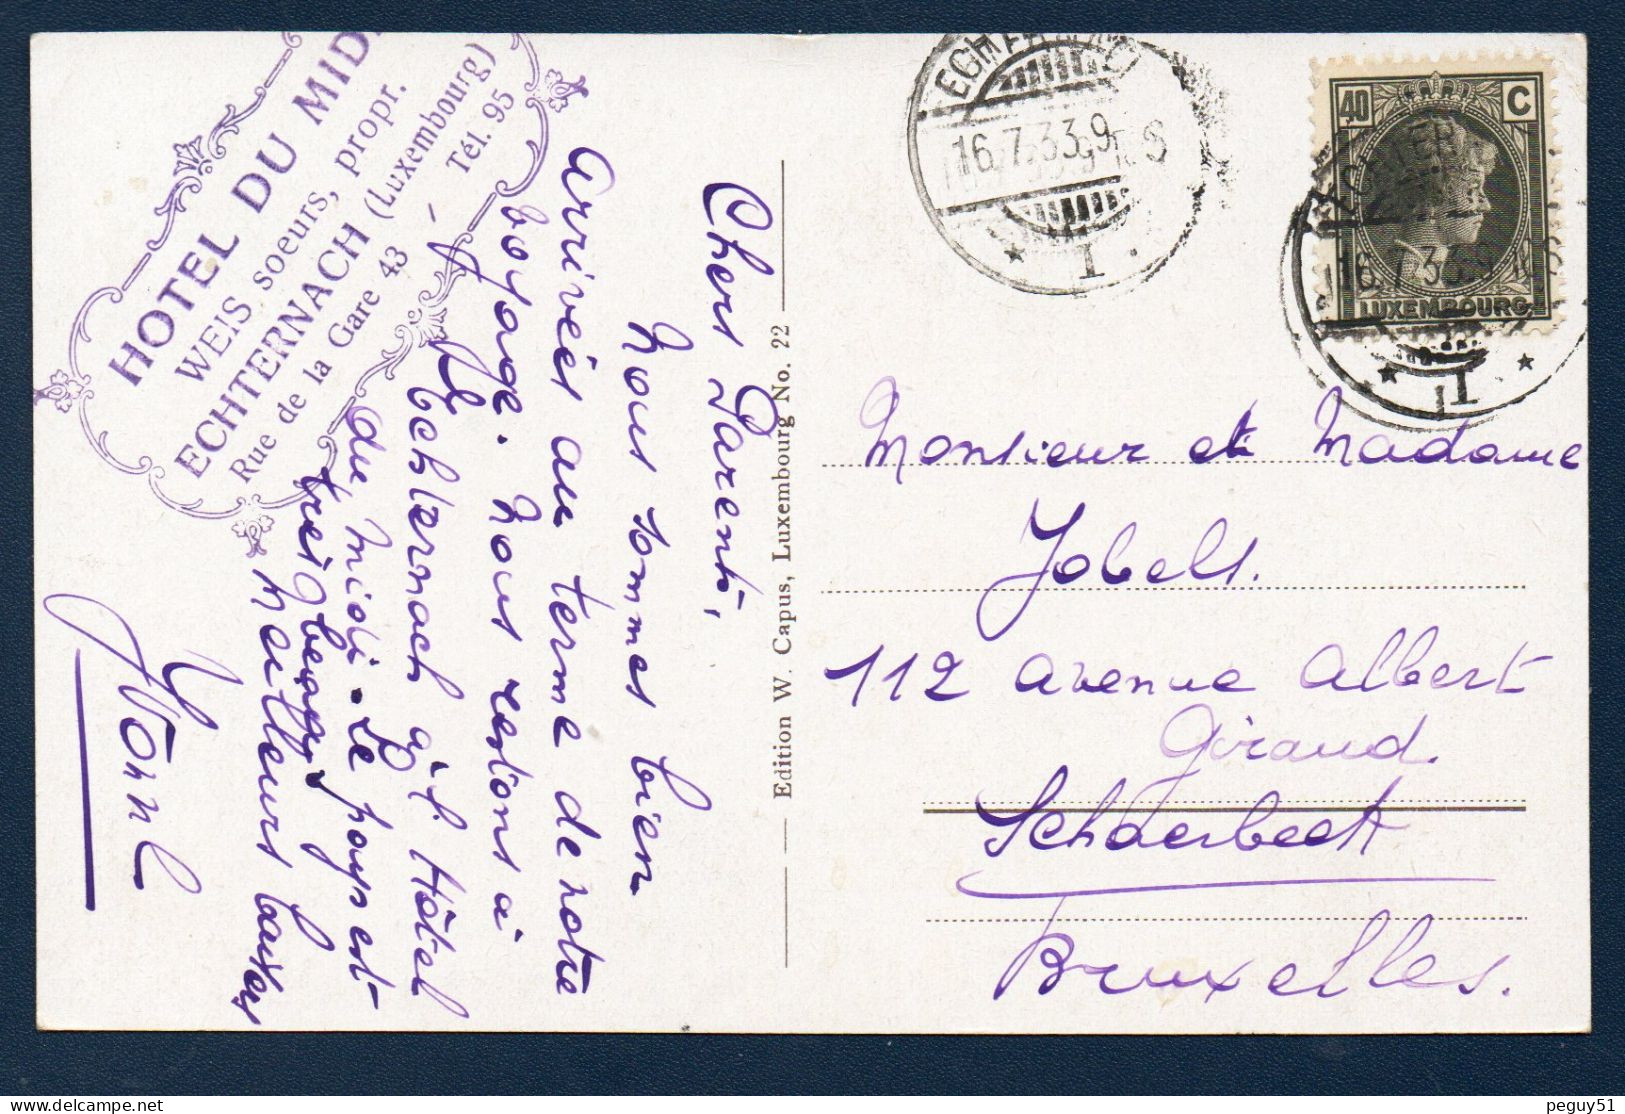 HOTEL DU MIDI
WEIS soeurs, propr.
ECHTERNACH (Luxembourg)
Rue de la Gare 43 Tél. 95
Chers Parents,
Nous sommes bien
arrivés au terme de notre
voyage. Nous restons à
Echternach à l'Hôtel
du Midi. Le pays est
très beau
Meilleurs baisers
Yvonne
Edition W. Capus, Luxembourg No. 22
16.7.33.9
1
40 C
16.7.33.9
LUXEMBOURG
1
Monsieur et Madame
Jobels.
112 avenue Albert
Giraud.
Schaerbeek
Bruxelles.
peguy51